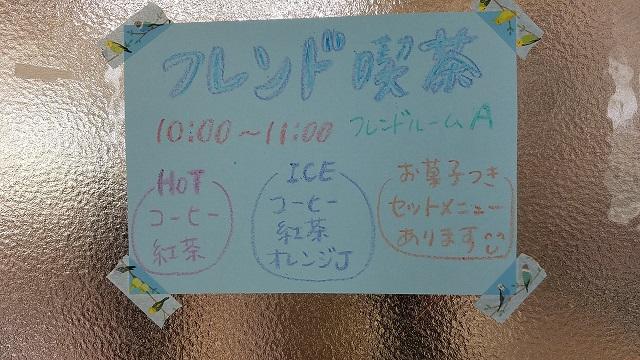 フレンド喫茶
10:00～11:00 フレンドルームA
HOT
コーヒー
紅茶
ICE
コーヒー
紅茶
オレンジJ
お菓子つき
セットメニュー
あります